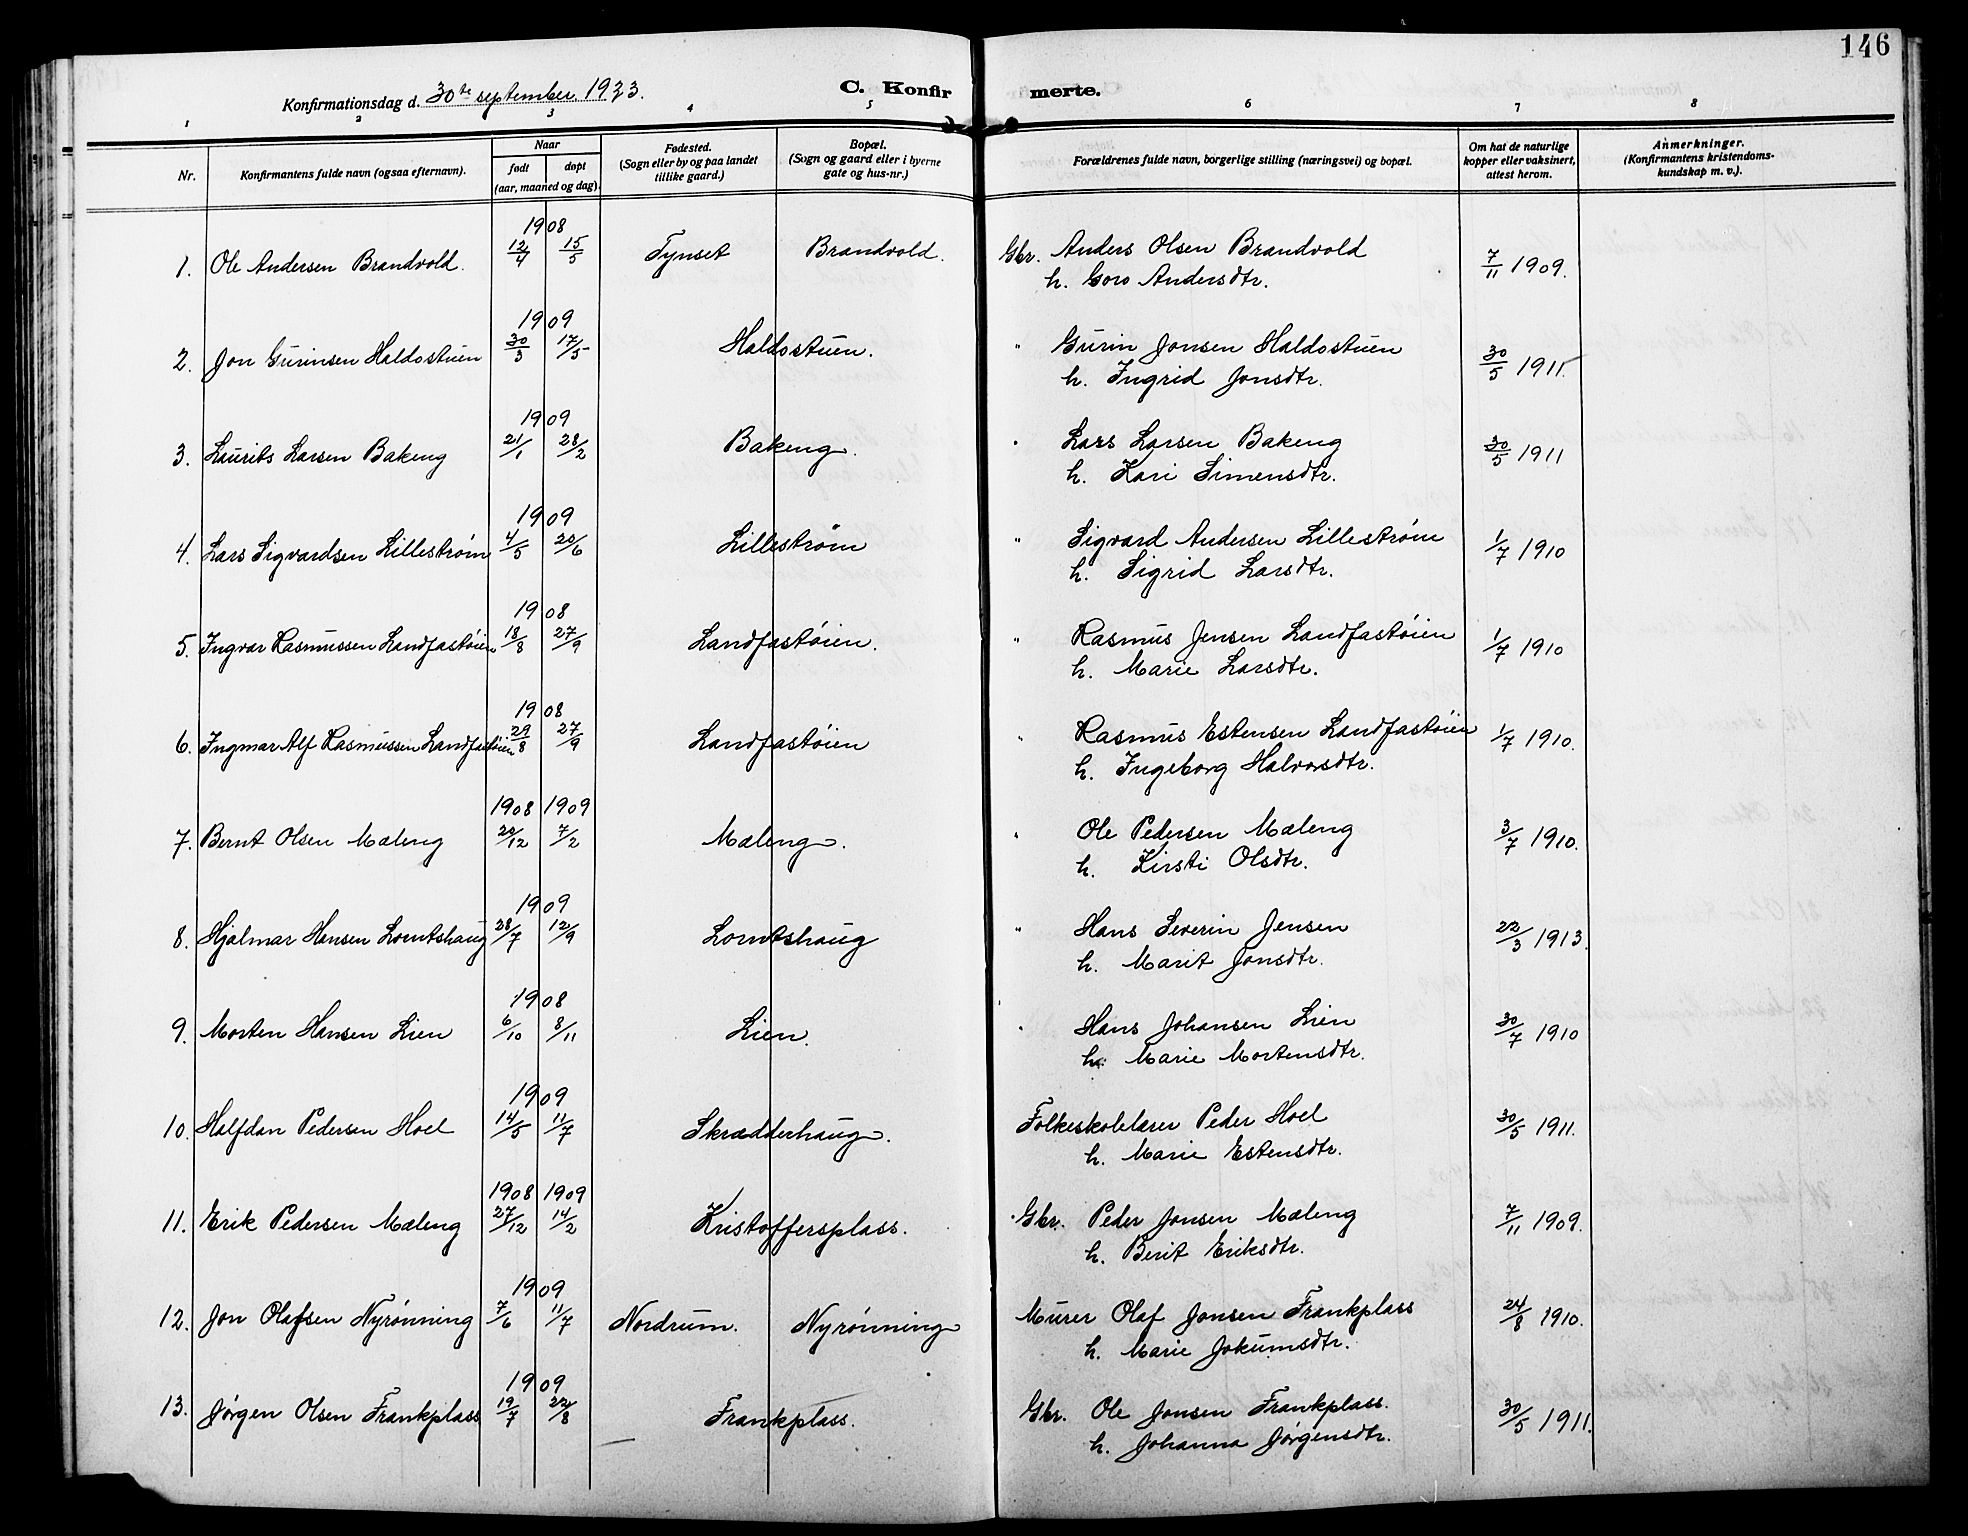 146
Konfirmationsdag d. 30te september 1923.
C. Konfir merte.
1 2 3 4 5 6 7 8
Nr. Konfirmantens fulde navn (ogsaa efternavn).
Naar
født døpt
(aar, maaned og dag).
Fødested.
(Sogn eller by og paa landet
tillike gaard.)
Bopæl.
(Sogn og gaard eller i byerne
gate og hus-nr.)
Forældrenes fulde navn, borgerlige stilling (næringsvei) og bopæl.
Om hat de naturlige
kopper eller vaksinert,
attest herom.
Anmerkninger.
(Konfirmantens kristendoms-
kundskap m. v.).
1908
1. Ole Andersen Brandvold. 12/4 15/5 Tynset Brandvold. Gbr. Anders Olsen Brandvold 7/11 1909.
h. Goro Andersdtr.
1909
2. Jon Gurinsen Haldostuen 30/3 17/5 Haldostuen. " Gurin Jonsen Haldostuen 30/5 1911.
h. Ingrid Jonsdtr.
1909
3. Laurits Larsen Bakeng 21/1 28/2 Bakeng. " Lars Larsen Bakeng 30/5 1911
h. Kari Simensdtr.
1909
4. Lars Sigvardsen Lillestrøm 4/5 20/6 Lillestrøm " Sigvard Andersen Lillestrøm 1/7 1910
h. Sigrid Larsdtr.
1908
5. Ingvar Rasmussen Landfastøien 18/8 27/9 Landfastøien. " Rasmus Jensen Landfastøien 1/7 1910
h. Marie Larsdtr.
1908
6. Ingmar Alf Rasmussen Landfastøien 29/8 27/9 Landfastøien " Rasmus Estensen Landfastøien 1/7 1910.
h. Ingeborg Halvorsdtr.
1908 1909
7. Bernt Olsen Mæleng 20/12 7/2 Mæleng. " Ole Pedersen Mæleng 3/7 1910.
h. Kirsti Olsdtr.
1909
8. Hjalmar Hansen Lomtshaug 28/7 12/9 Lomtshaug " Hans Severin Jensen 22/3 1913.
h. Marit Jonsdtr.
1908
9. Morten Hansen Lien 6/10 8/11 Lien. " Hans Johansen Lien 30/7 1910
h. Marie Mortensdtr.
1909
10. Halfdan Pedersen Hoel 14/5 11/7 Skrædderhaug. Folkeskolelærer Peder Hoel 30/5 1911.
h. Marie Estensdtr.
1908 1909
11. Erik Pedersen Mæleng 27/12 14/2 Kristoffersplass. Gbr. Peder Jonsen Mæleng 7/11 1909.
h. Berit Eriksdtr.
1909
12. Jon Olafsen Nyrønning 7/6 11/7 Nordrum. Nyrønning Murer Olaf Jonsen Frankplass 24/8 1910.
h. Marie Jokumsdtr.
1909
13. Jørgen Olsen Frankplass 19/7 22/8 Frankplass. Gbr. Ole Jonsen Frankplass. 30/5 1911.
h. Johanna Jørgensdtr.